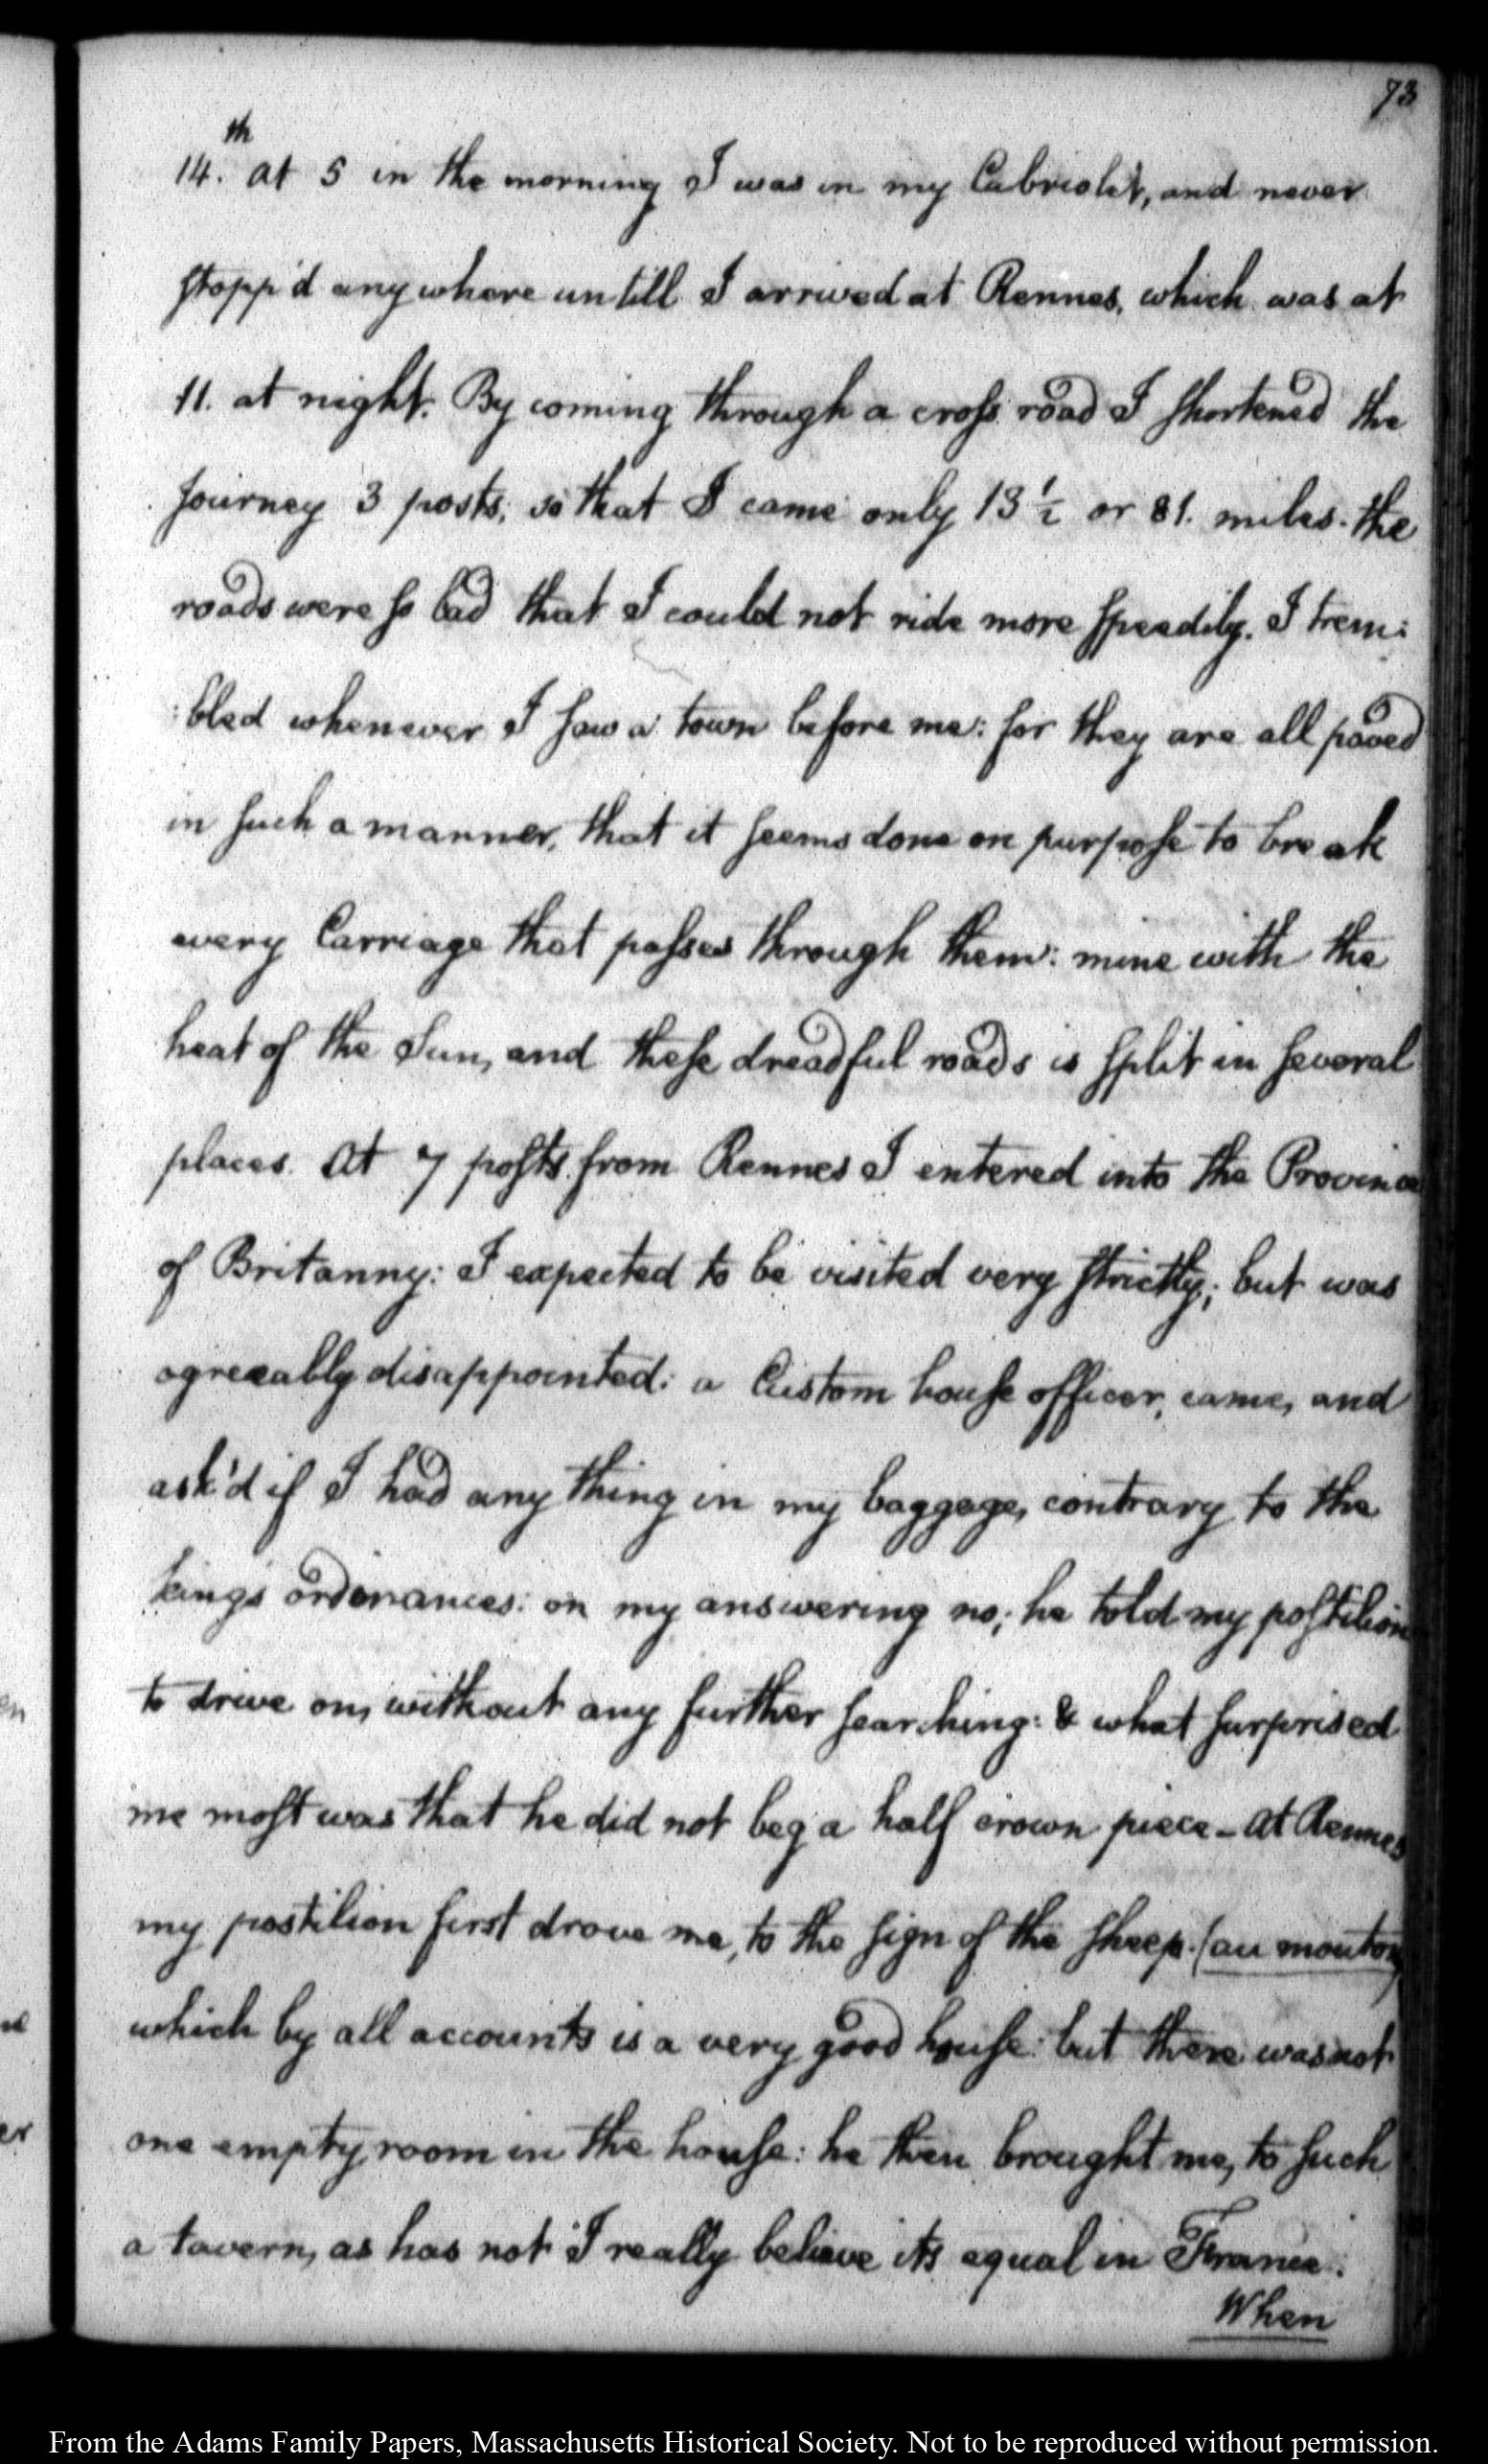 73
14.th at 5 in the morning I was in my Cabriolet, and never
stopp'd any where untill I arrived at Rennes, which was at
11. at night. By coming through a cross road I shortened the
journey 3 posts; so that I came only 13 1/2 or 81. miles. the
roads were so bad that I could not ride more speedily. I trem:
:bled whenever I saw a town before me: for they are all paved
in such a manner, that it seems done on purpose to break
every Carriage that passes through them: mine with the
heat of the Sun, and these dreadful roads is split in several
places. At 7 posts from Rennes I entered into the Province
of Britanny: I expected to be visited very strictly; but was
agreeably disappointed: a Custom house officer, came, and
ask'd if I had any thing in my baggage, contrary to the
king's ordinances: on my answering no; he told my postilion
to drive on, without any further searching: & what surprised
me most was that he did not beg a half crown piece - At Rennes
my postilion first drove me, to the sign of the sheep. (au mouton)
which by all accounts is a very good house: but there was not
one empty room in the house: he then brought me, to such
a tavern, as has not I really believe its equal in France.
When
From the Adams Family Papers, Massachusetts Historical Society. Not to be reproduced without permission.